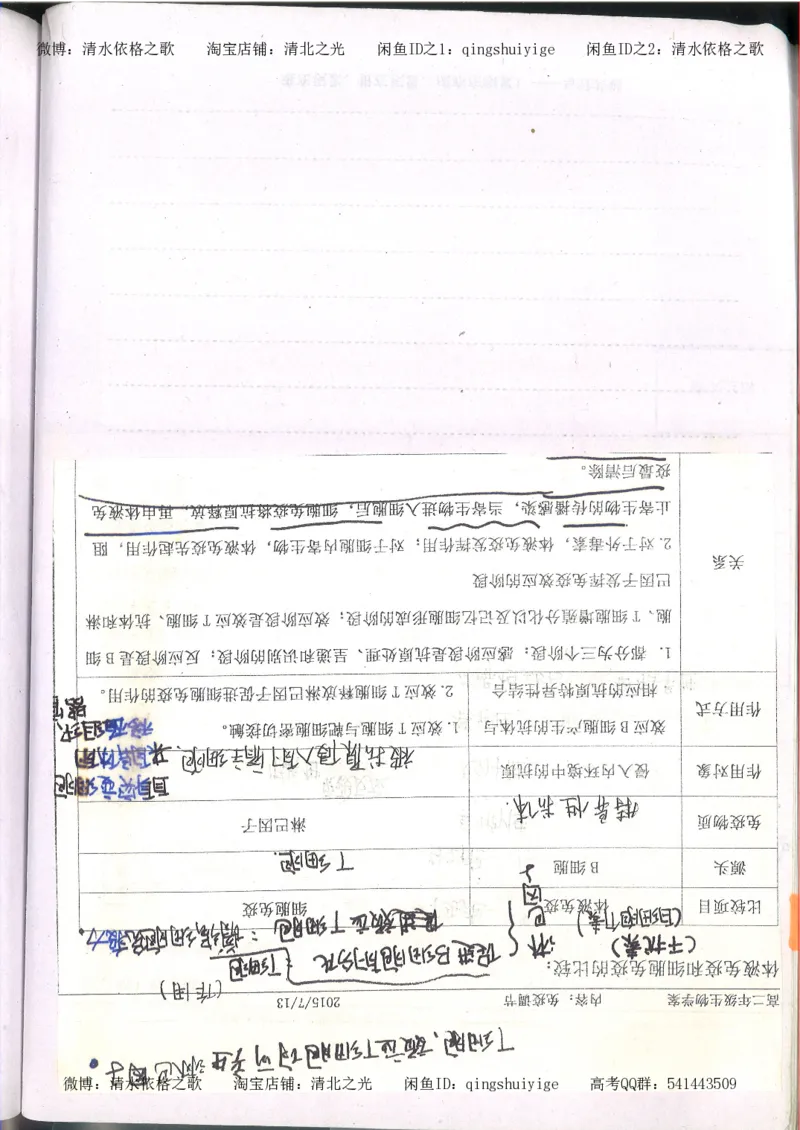 微博：清水依格之歌 淘宝店铺：清北之光 闲鱼ID之1：qingshuiyige 闲鱼ID之2：清水依格之歌
T细胞、效应T细胞均可产生淋巴因子
高二年级生物学案 内容：免疫调节 2015/7/13
（作用）
体液免疫和细胞免疫的比较：
（干扰素）
（白细胞介素）
淋巴因子
促进B细胞的分化
T细胞
促进效应T细胞：
比较项目 体液免疫 细胞免疫
源头 B细胞 T细胞
免疫物质 特异性抗体 淋巴因子
作用对象 侵入内环境中的抗原 被抗原侵入的宿主细胞、
自身突变细胞
来自异体的
移植组织、
器官
作用方式 效应B细胞产生的抗体与相应的抗原特异性结合 1. 效应T细胞与靶细胞密切接触。
2. 效应T细胞释放淋巴因子促进细胞免疫的作用。
关系
1. 都分为三个阶段：感应阶段是抗原处理、呈递和识别的阶段；反应阶段是B细
胞、T细胞增殖分化以及记忆细胞形成的阶段；效应阶段是效应T细胞、抗体和淋
巴因子发挥免疫效应的阶段
2. 对于外毒素，体液免疫发挥作用；对于细胞内寄生物，体液免疫先起作用，阻
止寄生物的传播感染，当寄生物进入细胞后，细胞免疫将抗原释放，再由体液免
疫最后清除。
微博：清水依格之歌 淘宝店铺：清北之光 闲鱼ID：qingshuiyige 高考QQ群：541443509